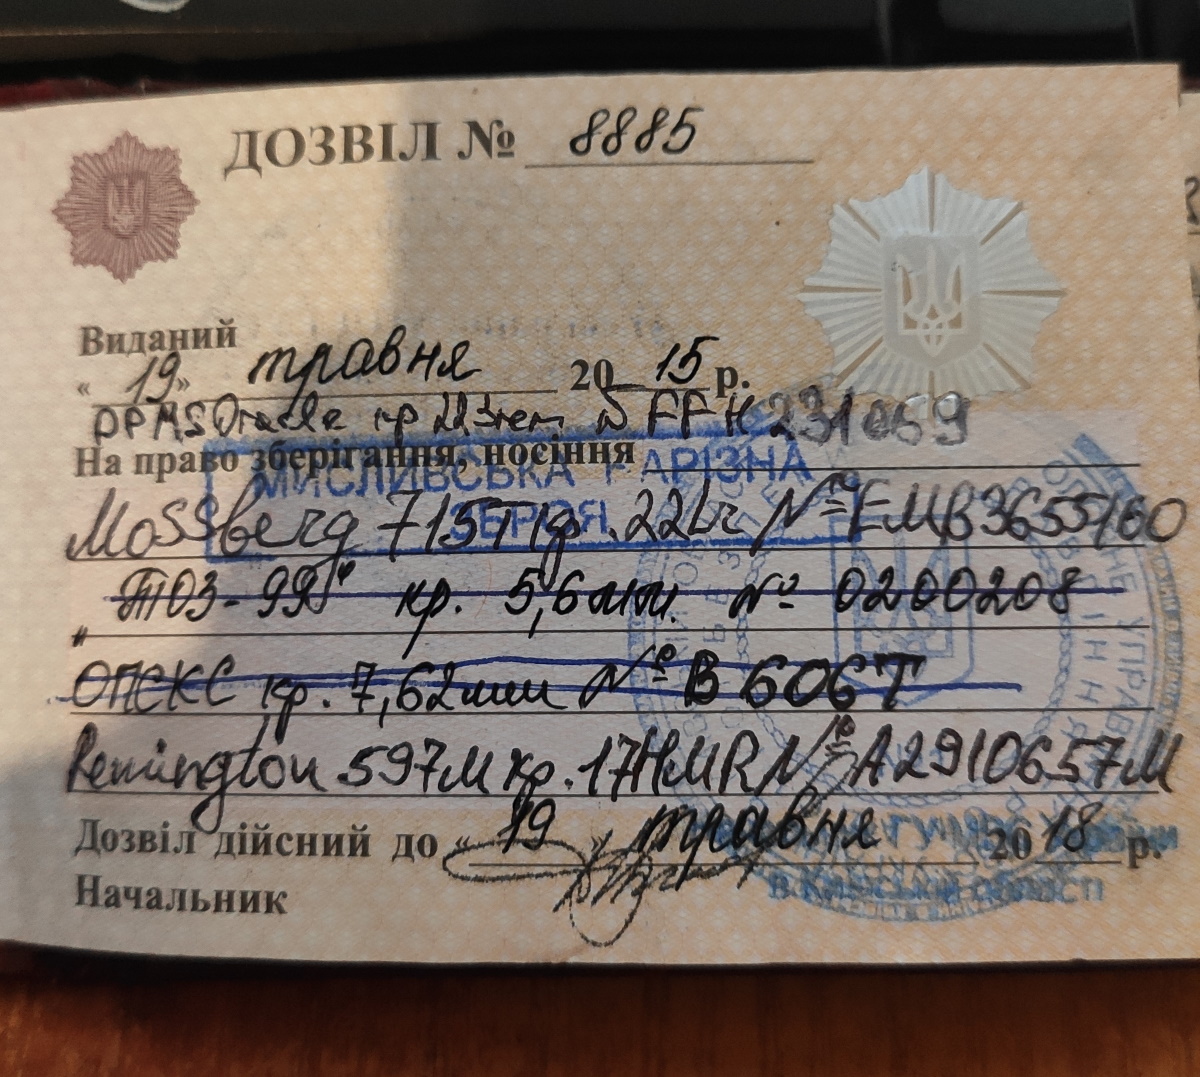 ДОЗВІЛ № 8885
Виданий
« 19 » травня 20 15 р.
DPMS Oracle кр 223rem № FFH231059
На право зберігання, носіння
МИСЛИВСЬКА НАРІЗНА
ЗБРОЯ
Mossberg 715T кр. 22Lr № EMB3655160
"ТОЗ-99" кр. 5,6мм. № 0200208
ОПСКС кр. 7,62мм № В 606Т
Remington 597М кр. 17HMR № A2910657M
Дозвіл дійсний до « 19 » травня 20 18 р.
Начальник
в Київській області